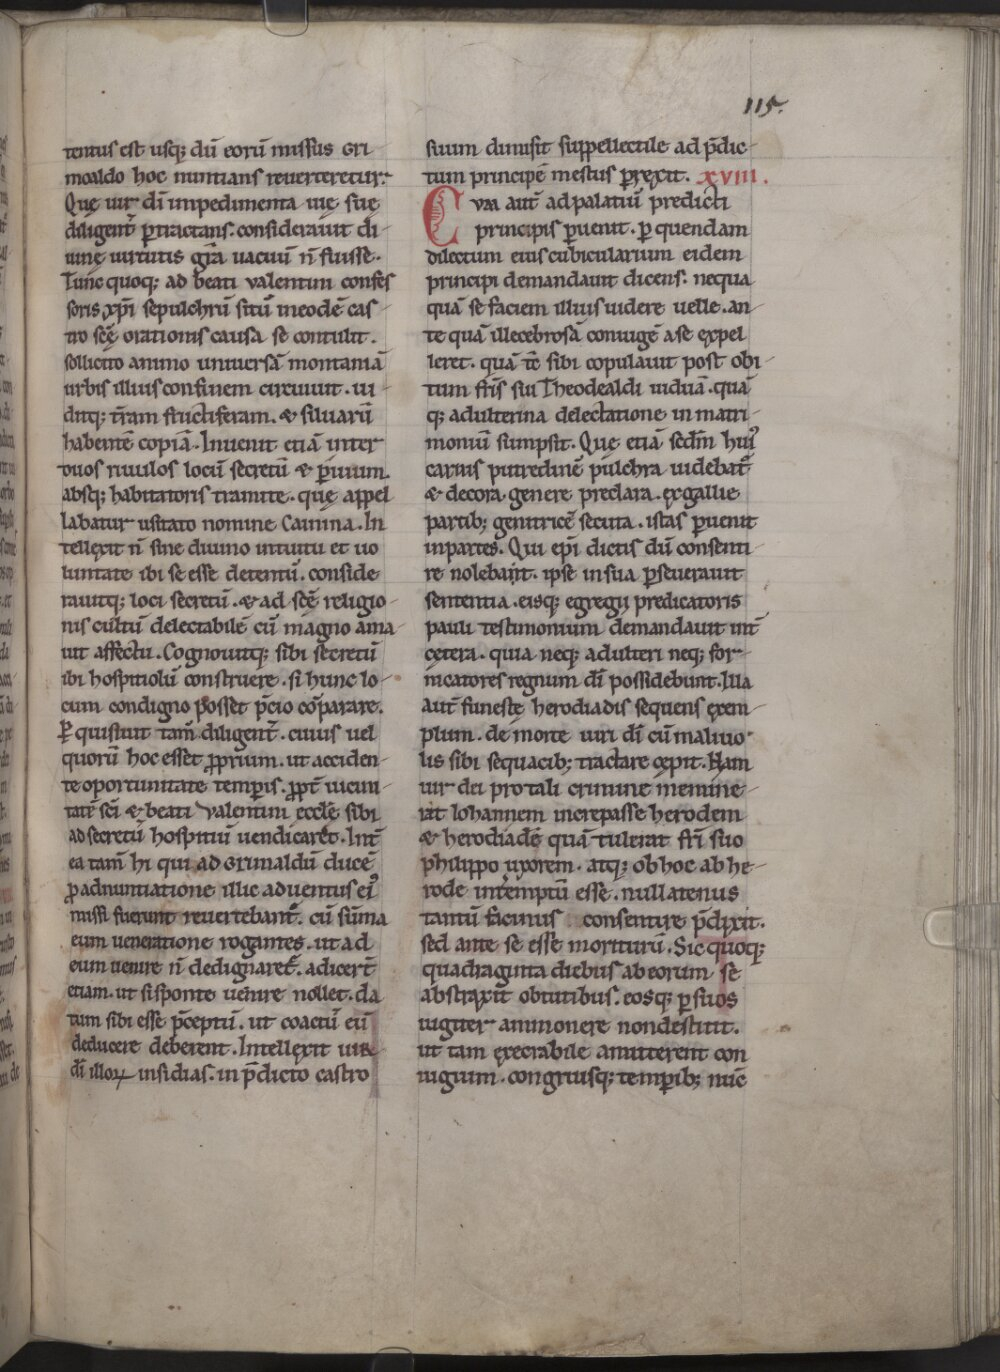 115.
tentus est usq; dū eorū missus Gri
moaldo hoc nuntians reuerteretur.
Quę uir dī impedimenta uię suę
diligent̄ ꝑtractans. considerauit di
uinę uirtutis gr̄a uacuū n̄ fuisse.
Tunc quoq; ad beati ualentini confes
soris xp̄i sepulchrū sitū ineodē cas
tro sc̄ę orationis causa se contulit.
sollicito animo uniuersā montaniā
urbis illius confinem circuiuit. ui
ditq; t̄ram fructiferam. & siluarū
habentē copiā. Inuenit etiā inter
duos riuulos locū secretū & ꝑuium.
absq; habitatoris tramite. quę appel
labatur usitato nomine Camina. In
tellexit n̄ sine diuino intuitu et uo
luntate ibi se esse detentū. conside
rauitq; loci secretū. & ad sc̄ę religio
nis cultū delectabilē cū magno ama
uit affectu. Cognouitq; sibi secretū
ibi hospitiolū construere. si hunc lo
cum condigno posset p̄cio cōparare.
Ꝑquisiuit tam̄ diligent̄. cuius uel
quorū hoc esset ꝓprium. ut acciden
te oportunitate temꝑis. ꝓpt̄ uicini
tatē sc̄i & beati Valentini eccłę sibi
ad secretū hospitiū uendicaret. Int̄
ea tam̄ hi qui ad Grimaldū ducē
ꝓ adnuntiatione illic aduentus ei᾿
missi fuerunt reuertebant᷑. cū sūma
eum ueneratione rogantes. ut ad
eum uenire n̄ dedignaret᷑. adicert̄
etiam. ut si sponte uenire nollet. da
tum sibi esse p̄ceptū. ut coactū eū
deducere deberent. Intellexit uir
dī illoꝝ insidias. in p̄dicto castro
suum dimisit suppellectile ad p̄dic
tum principē mestus ꝑrexit. XVIII.
Cum aut̄ ad palatiū predicti
principis ꝑuenit. ꝑ quendam
dilectum eius cubicularium eidem
principi demandauit dicens. nequa
quā se faciem illius uidere uelle. an
te quā illecebrosā coniugē a se expel
leret. quā tē sibi copulauit post obi
tum fr̄is sui Theodealdi uiduā. quā
q; adulterina delectatione in matri
moniū sumpsit. Quę etiā sedm̄ hui᾿
carnis putredinē pulchra uidebat᷑
& decora. genere preclara. ex gallię
partib; genitricē secuta. istas ꝑuenit
in partes. Qui epī dictis dū consenti
re nolebant. ipse in sua ꝑseuerauit
sententia. eisq; egregij predicatoris
pauli testimonium demandauit int̄
cetera. quia neq; adulteri neq; for
nicatores regnum dī possidebunt. Illa
aut̄ funestę herodiadis sequens exem
plum. de morte uiri dī cū maliuo
lis sibi sequacib; tractare cępit. Nam
uir dei pro tali crimine memine
rat Iohannem increpasse herodem
& herodiadē quā tulerat fr̄i suo
philippo uxorem. atq; ob hoc ab he
rode int̄emptū esse. nullatenus
tantū facinus consentire p̄dixit.
sed ante se esse moriturū. Sic quoq;
quadraginta diebus ab eorum se
abstraxit obtutibus. eosq; ꝑ suos
iugiter ammonere non destitit.
ut tam execrabile amitterent con
iugium. congruisq; temꝑib; nūc